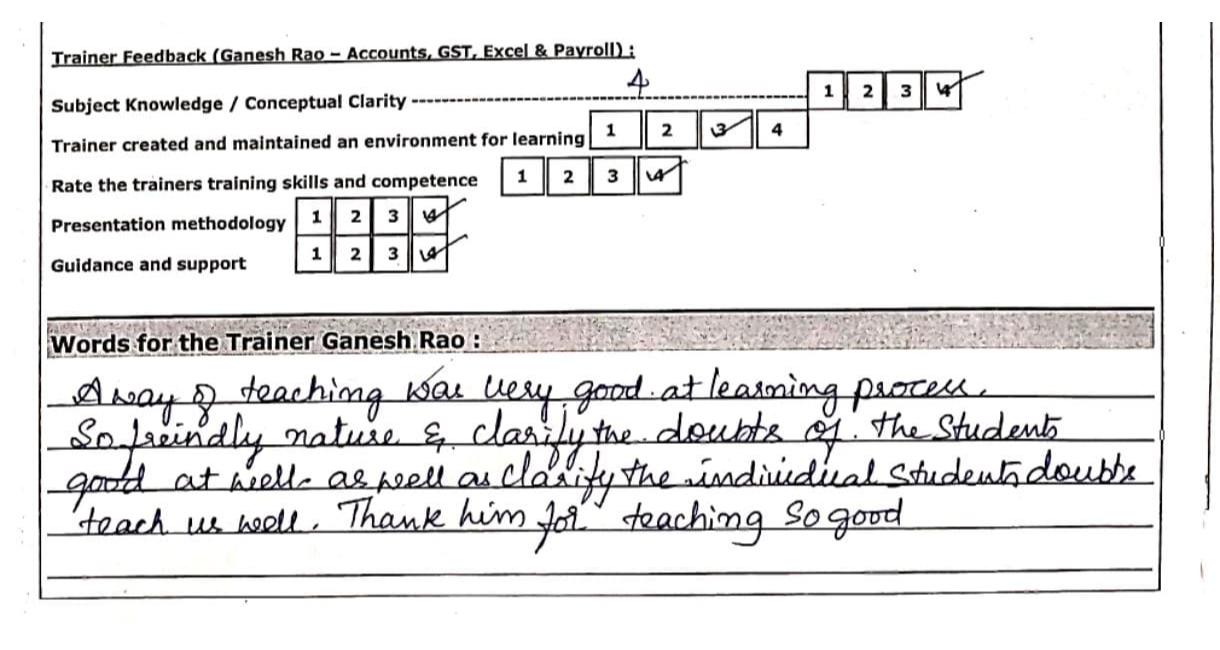 Trainer Feedback (Ganesh Rao – Accounts, GST, Excel & Payroll) :
4
Subject Knowledge / Conceptual Clarity ---------------------------------------------------- 1 2 3 4
Trainer created and maintained an environment for learning 1 2 3 4
Rate the trainers training skills and competence 1 2 3 4
Presentation methodology 1 2 3 4
Guidance and support 1 2 3 4
Words for the Trainer Ganesh Rao :
A way of teaching was very good. at learning process.
So freindly nature & clarify the doubts of. the Students
good at well. as well as clarify the individual Students doubts
teach us well. Thank him for teaching So good